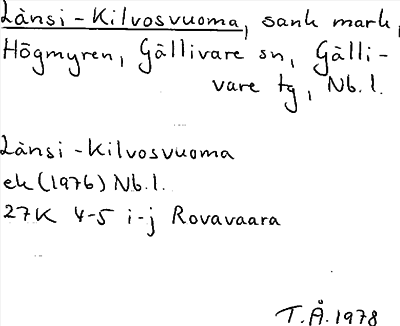 Länsi-Kilvosvuoma, sank mark,
Högmyren, Gällivare sn, Gälli-
vare tg, Nb.l.
Länsi-Kilvosvuoma
ek (1976) Nb.l.
27K 4-5 i-j Rovavaara
T.Å. 1978